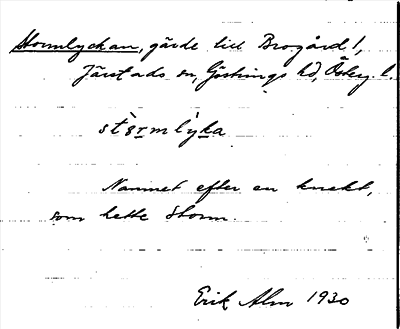 Stormlyckan, gärde till Brogård 1,
Järstads sn, Göstrings hd, Österg. l.
stɔrmlỳka
Namnet efter en knekt,
som hette Storm.
Erik Alm 1930